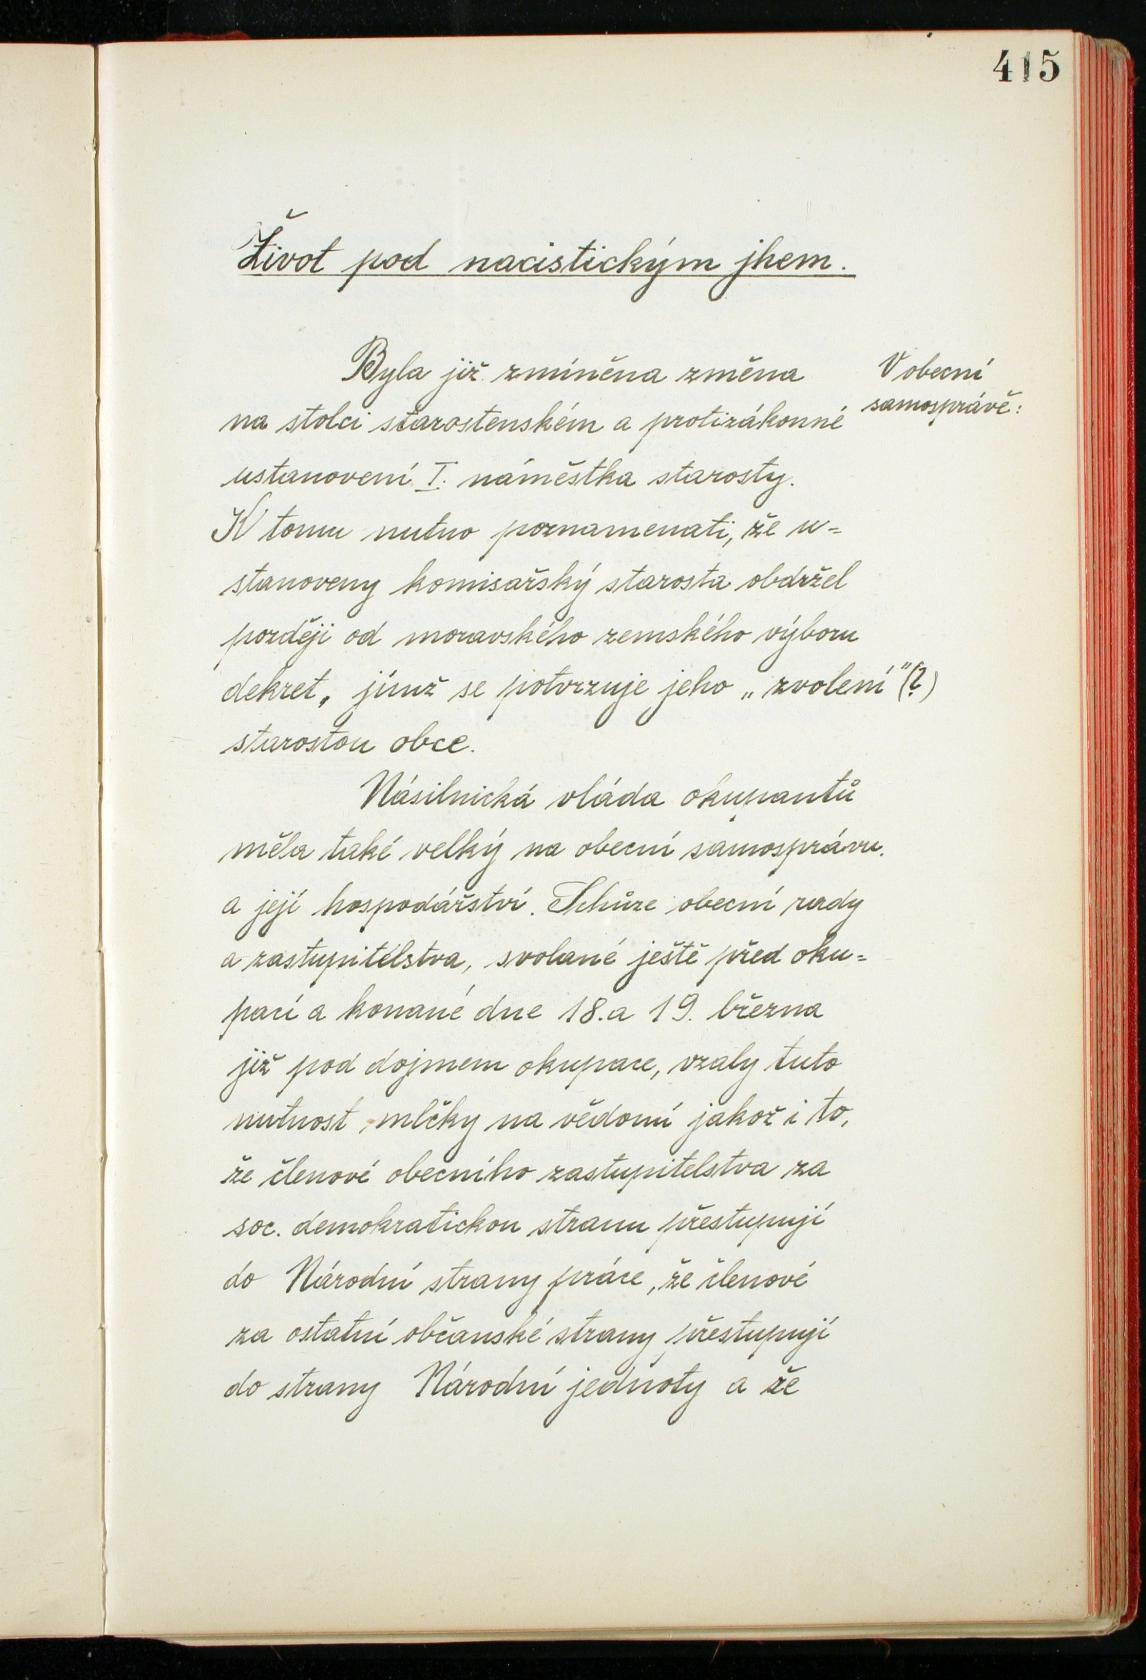 415
Život pod nacistickým jhem.
Byla již zmíněna změna
V obecní
samosprávě:
na stolci starostenském a protizákonné
ustanovení I. náměstka starosty.
K tomu nutno poznamenati, že u-
stanoveny komisařský starosta obdržel
později od moravského zemského výboru
dekret, jímž se potvrzuje jeho „zvolení"(?)
starostou obce.
Násilnická vláda okupantů
měla také velký na obecní samosprávu.
a její hospodářství. Schůze obecní rady
a zastupitelstva, svolané ještě před oku-
pací a konané dne 18. a 19. března
již pod dojmem okupace, vzaly tuto
nutnost mlčky na vědomí jakož i to,
že členové obecního zastupitelstva za
soc. demokratickou stranu přestupují
do Národní strany práce, že členové
za ostatní občanské strany přestupují
do strany Národní jednoty a že